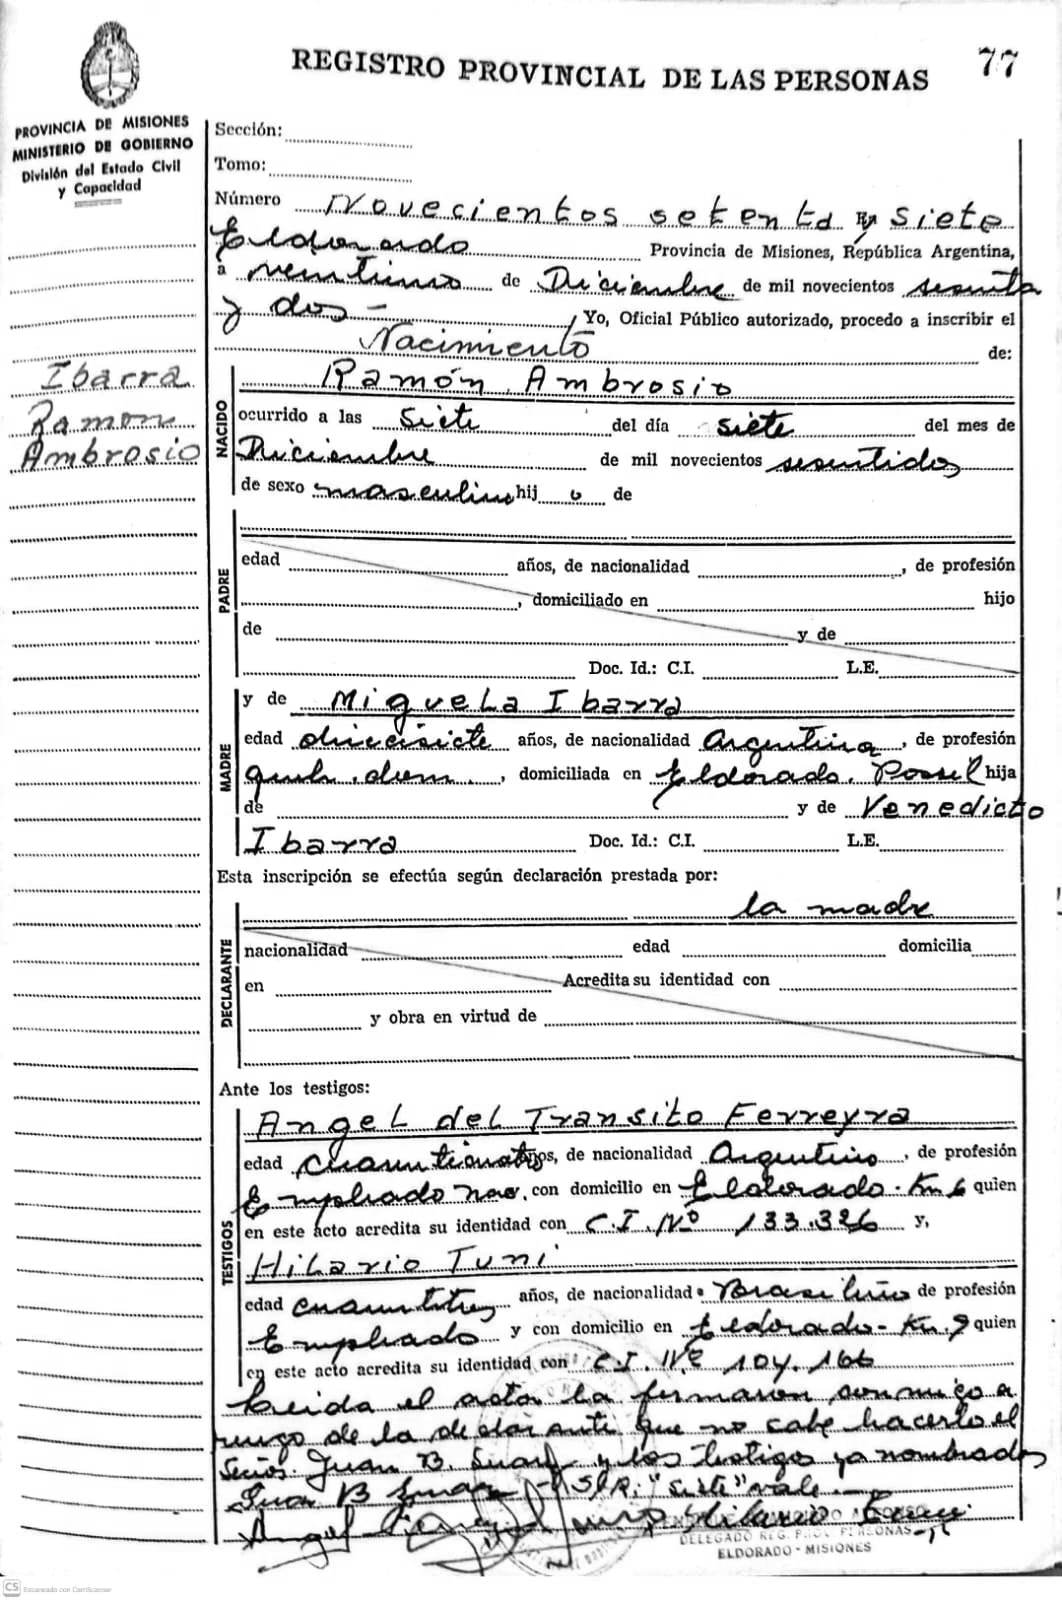 77
REGISTRO PROVINCIAL DE LAS PERSONAS
PROVINCIA DE MISIONES
MINISTERIO DE GOBIERNO
División del Estado Civil
y Capacidad
Sección:
Tomo:
Número Novecientos setenta y siete
Eldorado Provincia de Misiones, República Argentina,
a veintiuno de Diciembre de mil novecientos sesenta
y dos - Yo, Oficial Público autorizado, procedo a inscribir el
Nacimiento de:
Ibarra
Ramon
Ambrosio
NACIDO
Ramón Ambrosio
ocurrido a las siete del día siete del mes de
Diciembre de mil novecientos sesentidos
de sexo masculino hij o de
PADRE
edad años, de nacionalidad , de profesión
, domiciliado en hijo
de y de
Doc. Id.: C.I. L.E.
MADRE
y de Miguela Ibarra
edad diecisiete años, de nacionalidad Argentina , de profesión
queh. dom. , domiciliada en Eldorado. hija
de y de Venedicto
Ibarra Doc. Id.: C.I. L.E.
Esta inscripción se efectúa según declaración prestada por:
la madre
DECLARANTE
nacionalidad edad domicilia
en Acredita su identidad con
y obra en virtud de
Ante los testigos:
TESTIGOS
Angel del Transito Ferreyra
edad cuarenticuatro años, de nacionalidad Argentino , de profesión
Empleado Nac. con domicilio en Eldorado - Km 6 quien
en este acto acredita su identidad con C.I. Nº 133.326 y,
Hilario Tuni
edad cuarentitres años, de nacionalidad Brasileño de profesión
Empleado y con domicilio en Eldorado - Km. 9 quien
en este acto acredita su identidad con C.I. Nº 104.166
Leida el acta la firmaron conmigo a
ruego de la declarante que no sabe hacerlo el
Señor Juan B. y los testigos ya nombrados
Juan B "siete" vale.-
Angel Hilario Tuni
DELEGADO REG. PROV. PERSONAS
ELDORADO - MISIONES
CS Escaneado con CamScanner